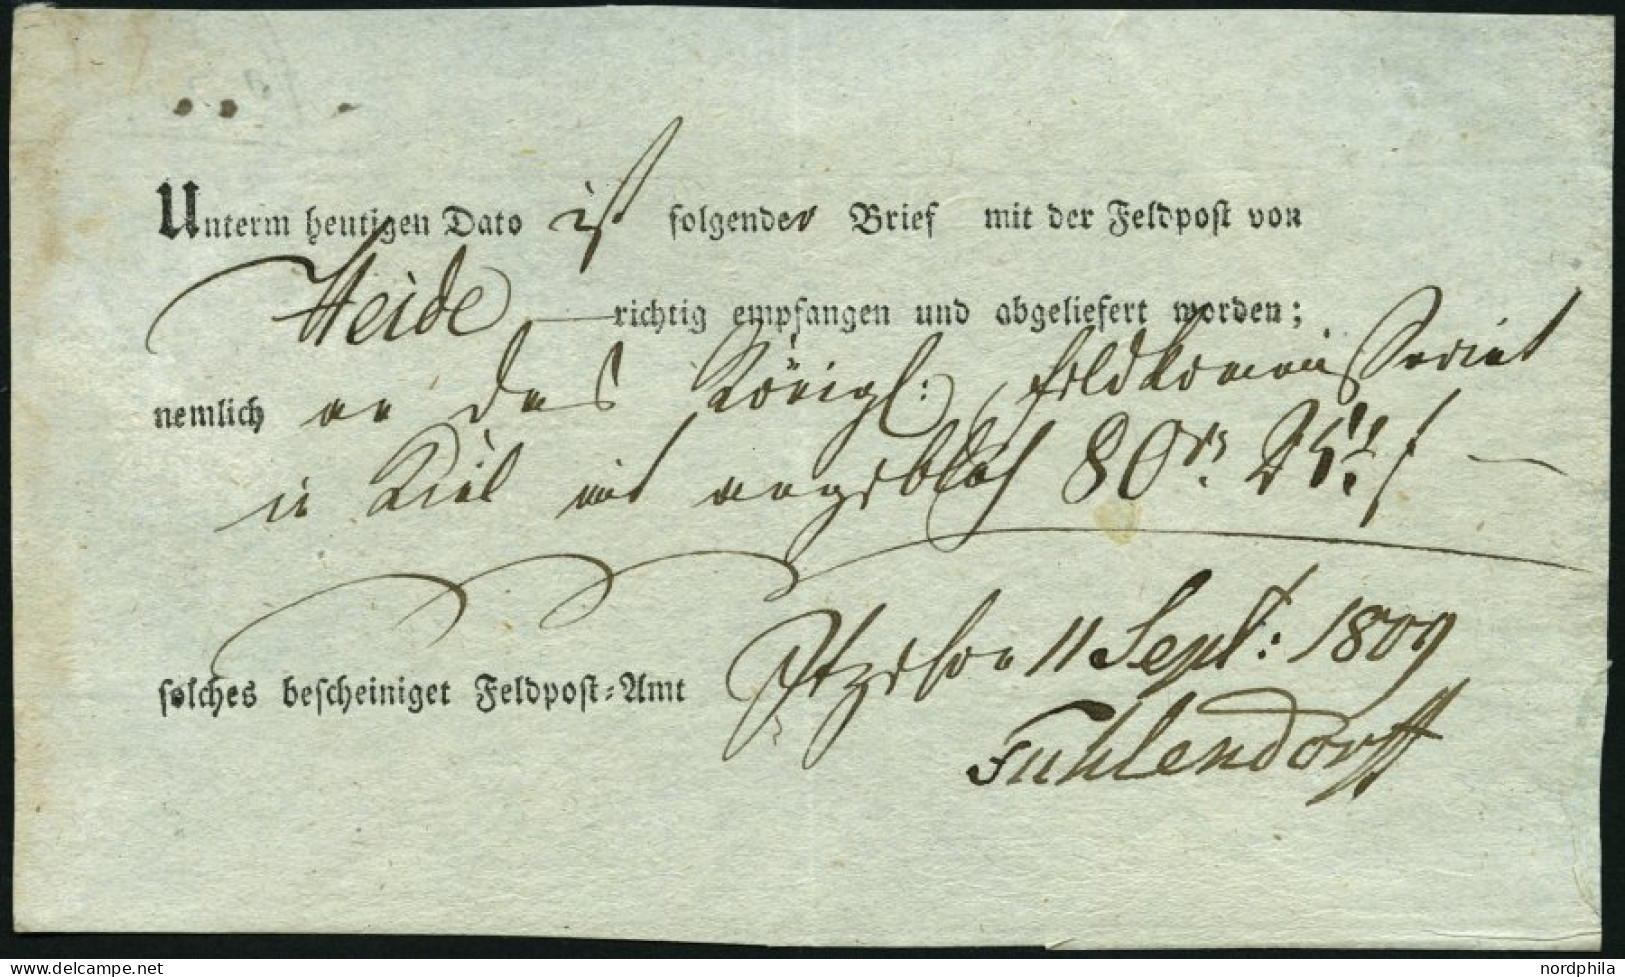 Unterm heutigen Dato ist folgender Brief mit der Feldpost von
Heide richtig empfangen und abgeliefert worden;
nemlich an das Königl: Feldkommissariat
in Kiel mit angeblich 80
solches bescheiniget Feldpost-Amt Itzehoe 11 Sept: 1809
Fuhlendorff
nordphila